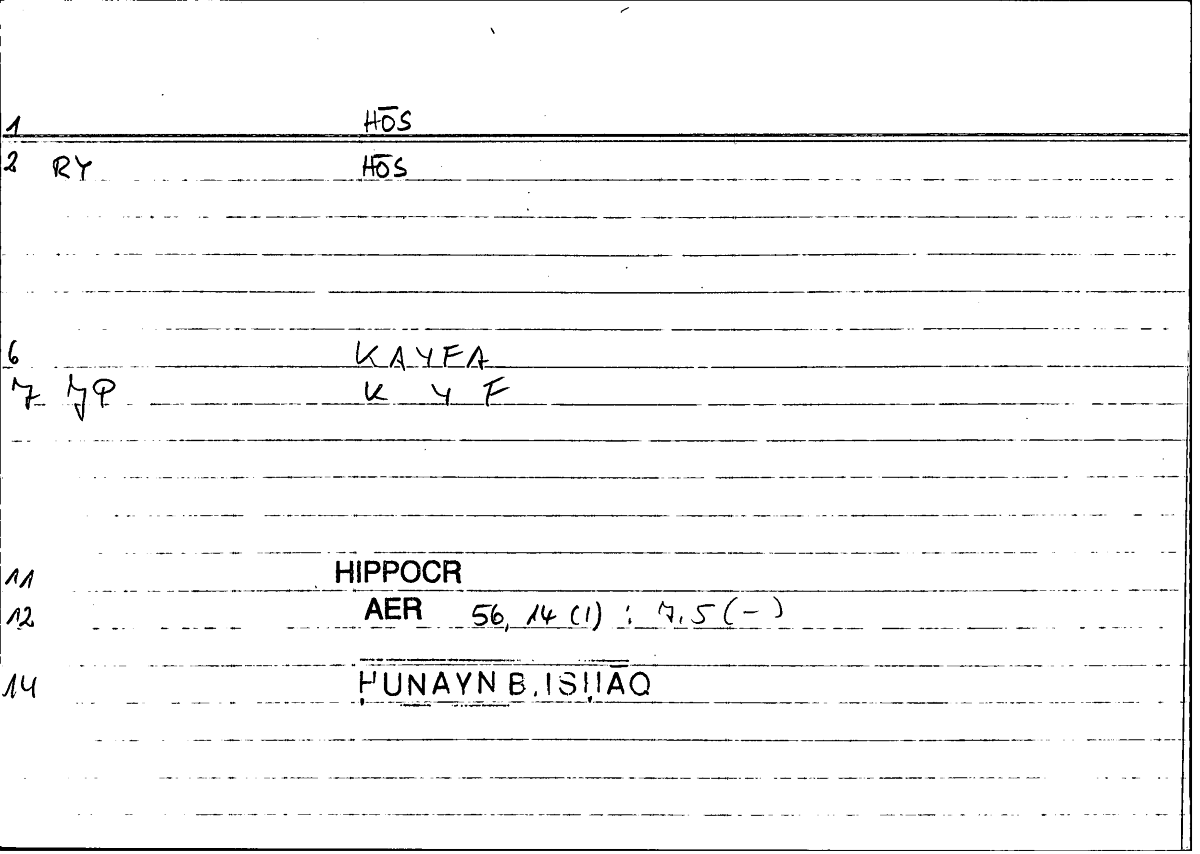 1 HŌS
2 RY HŌS
6 KAYFA
7 JP K Y F
11 HIPPOCR
12 AER 56, 14 (1) : 7,5 (-)
14 ḤUNAYN B. ISḤĀQ